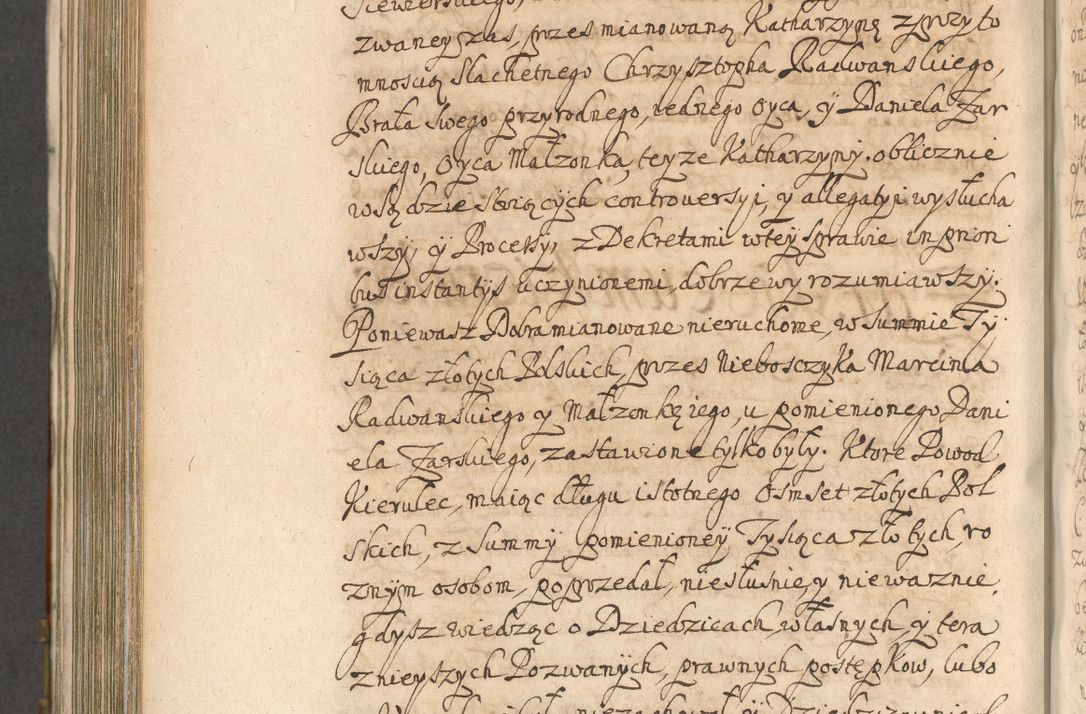 zwaney zas, przes mianowaną Katharzynę z przyto
mnoscią Slachetnego Chrzysztopha Radwanskiego,
Brata swego przyrodnego, iednego oyca, ÿ Daniela Zar
skiego, oyca Małzonka, teyze Katharzyny. oblicznie
w Sądzie stoiących controuersyi, y allegatyi wysłucha
wszy, ÿ Processy, z Dekretami wteÿ sprawie in priori
bus instantÿs uczynionemi, dobrze wyrozumiawszy.
Poniewasz Dobra mianowane nieruchome, w summie Ty
siąca złotych Polskich, przes Nieboszczyka Marcina
Radwanskiego y Małzonkę iego, u pomienionego Dani
ela Zarskiego, zastawione tylko były. Ktore Powod
Kierulec, maiąc długu istotnego osmset złotych Pol
skich, z summÿ pomienioneÿ Tysiąca złotych, ro
znÿm osobom, poprzedał, niesłusnie, y niewaznie.
gdysz wiedząc o Dziedzicach własnych, ÿ tera
znieyszych Pozwanÿch, prawnych postępkow, lubo